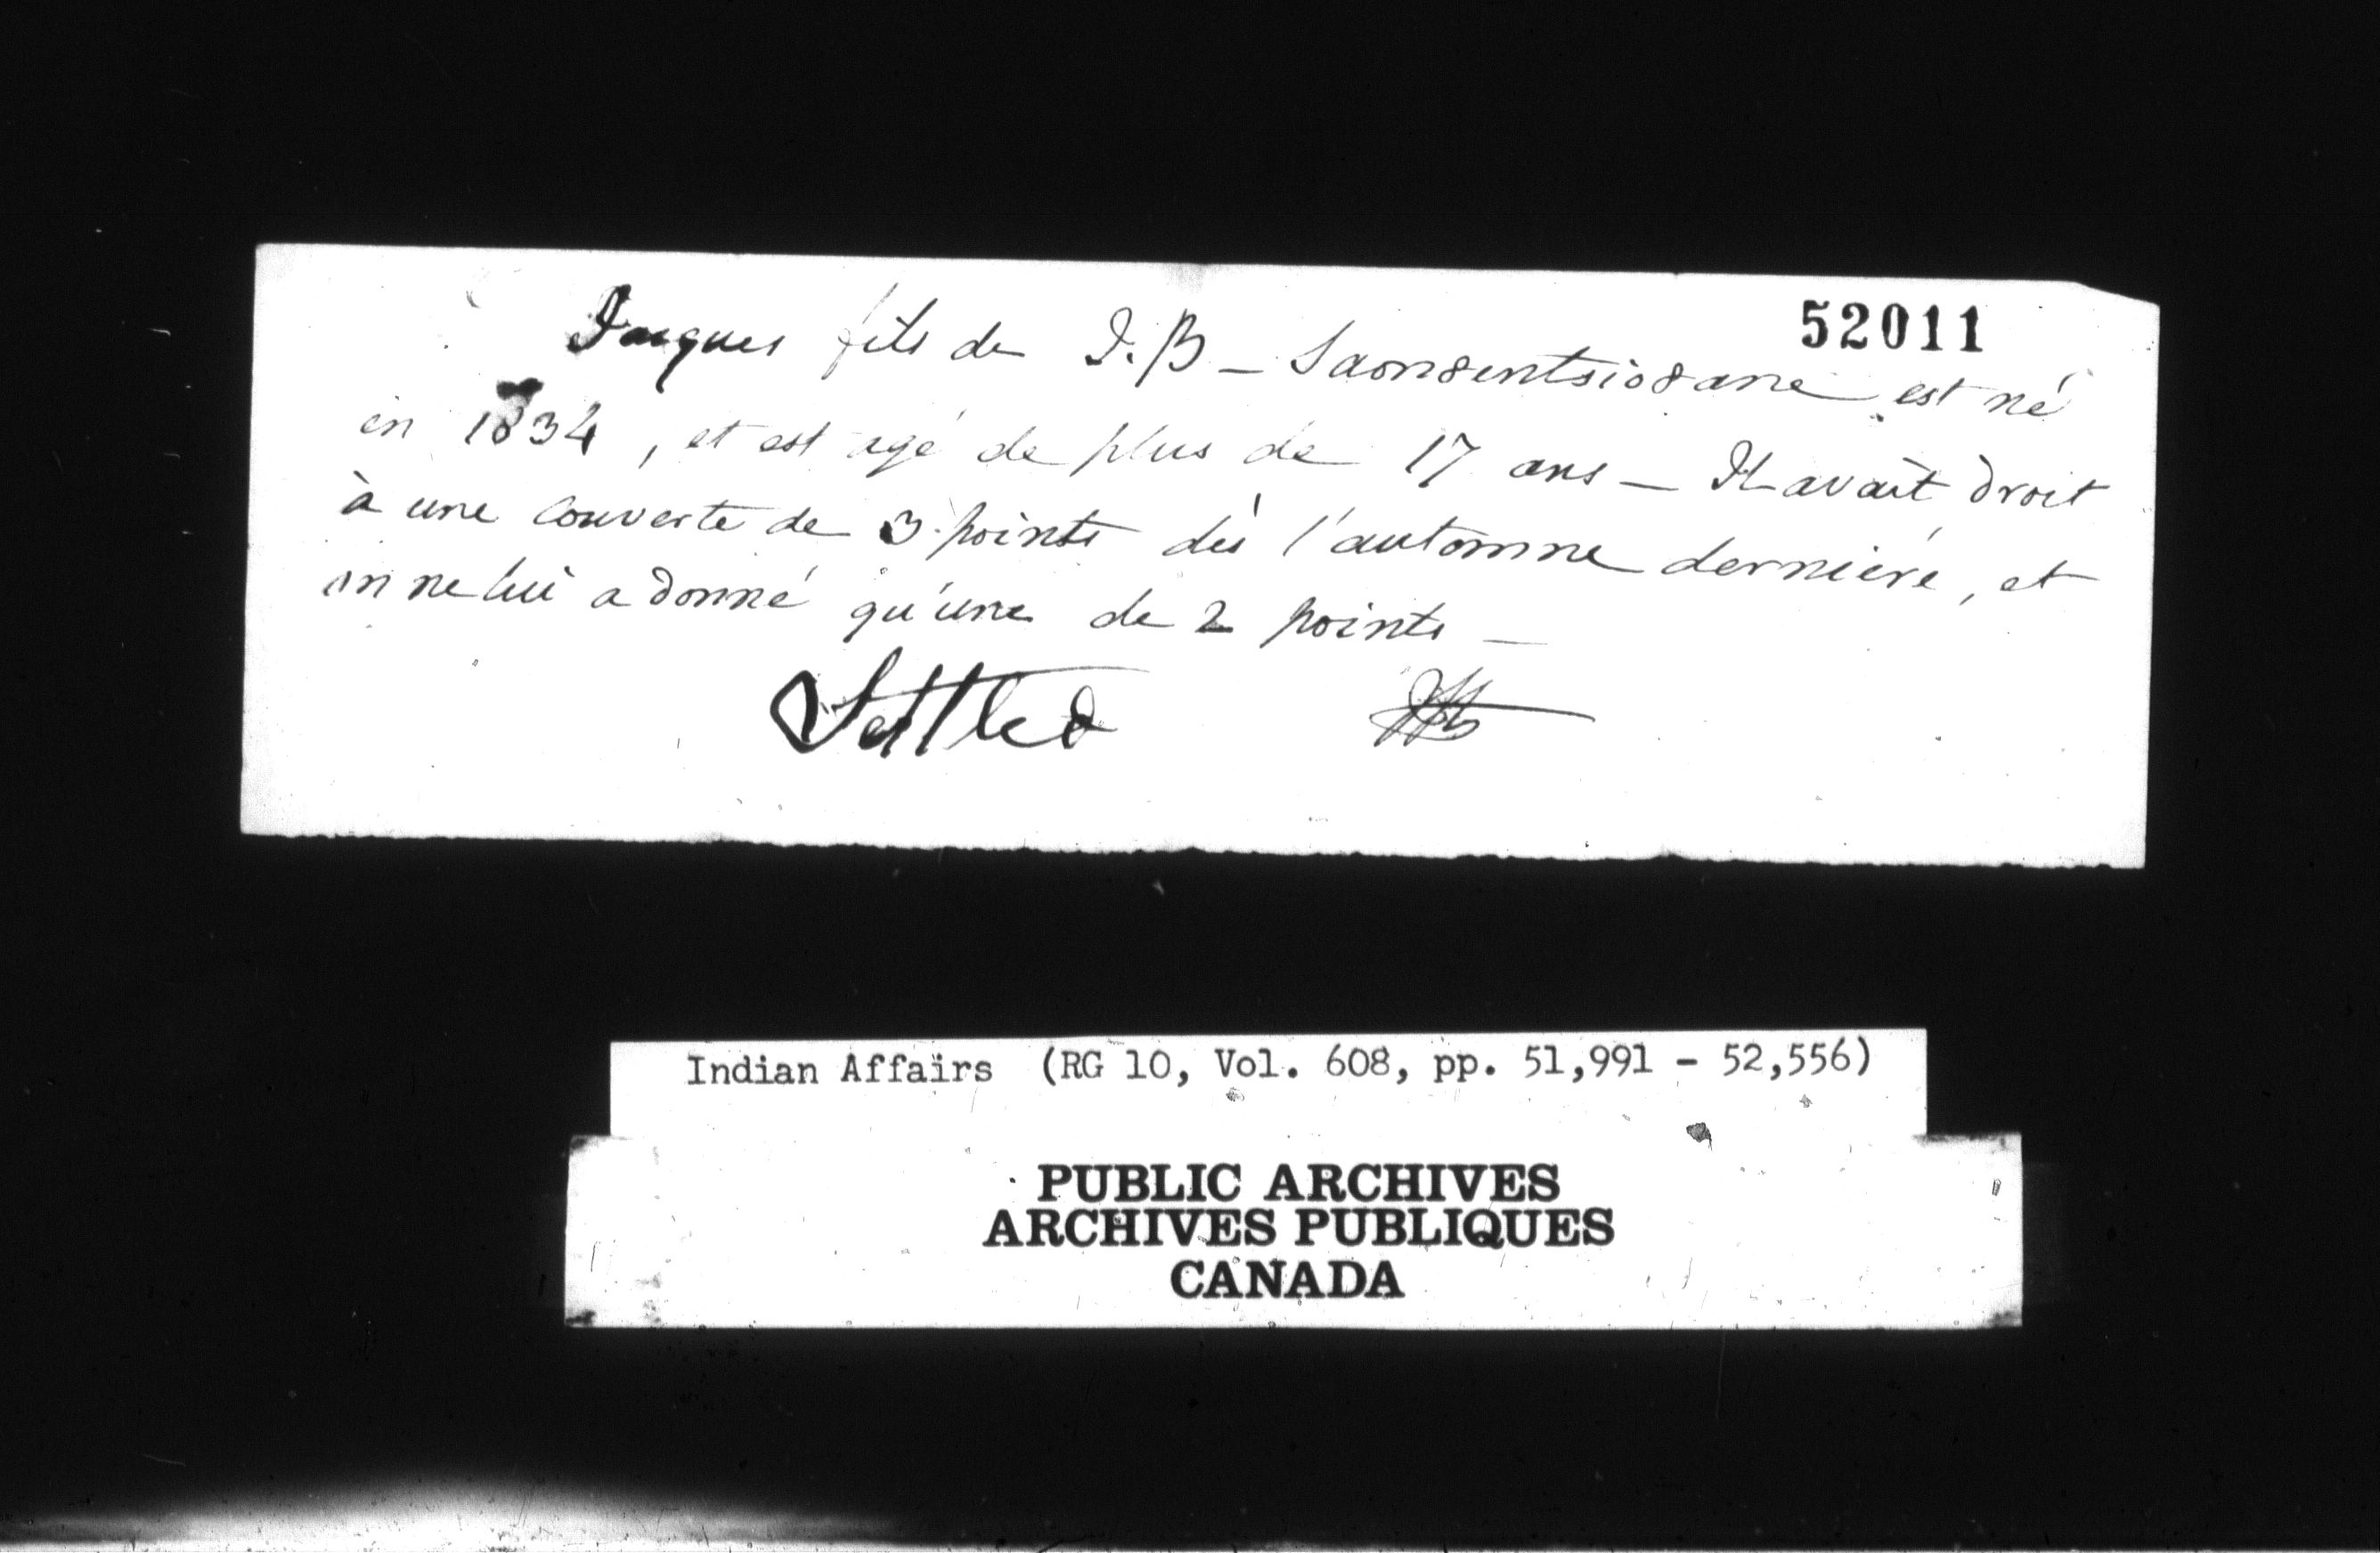 52011
Jacques fils de J. B – Saonsentsio8ane est né
en 1834, et est agé de plus de 17 ans – Il avait droit
à une couverte de 3 points dès l'automne dernière, et
on ne lui a donné qu'une de 2 points –
Settled
Indian Affairs (RG 10, Vol. 608, pp. 51,991 - 52,556)
PUBLIC ARCHIVES
ARCHIVES PUBLIQUES
CANADA